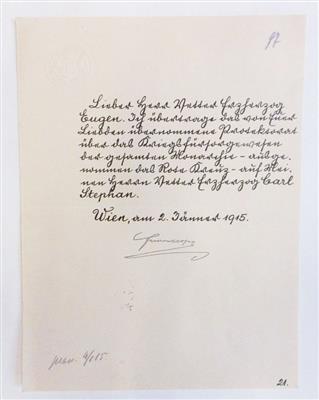 97
Lieber Herr Vetter Erzherzog
Eugen. Ich übertrage das von Euer
Liebden übernommene Protektorat
über das Kriegsfürsorgewesen
der gesamten Monarchie - ausge,
nommen das Rote Kreuz - auf Mei,
nen Herrn Vetter Erzherzog Carl
Stephan.
Wien, am 2. Jänner 1915.
21.